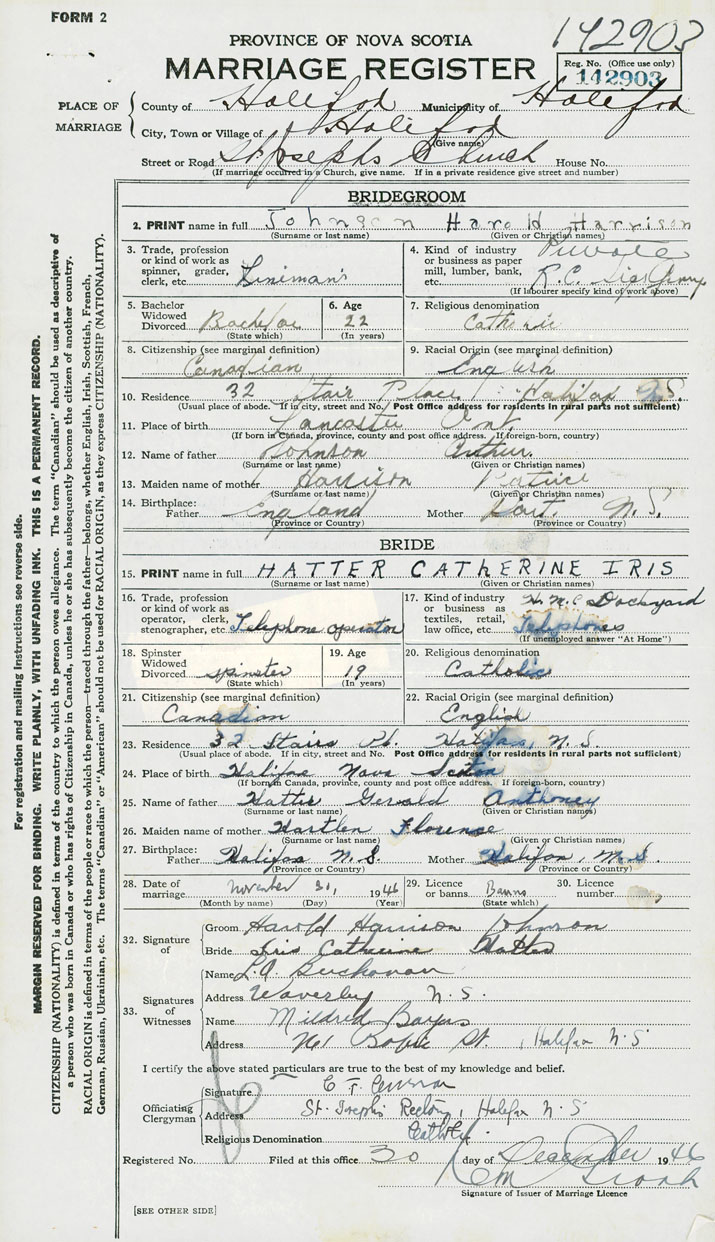 FORM 2
142903
PROVINCE OF NOVA SCOTIA
MARRIAGE REGISTER
Reg. No. (Office use only)
142903
PLACE OF MARRIAGE
County of Halifax Municipality of Halifax
City, Town or Village of Halifax
(Give name)
Street or Road St. Josephs Church House No.
(If marriage occurred in a Church, give name. If in a private residence give street and number)
BRIDEGROOM
2. PRINT name in full Johnson Harold Harrison
(Surname or last name) (Given or Christian names)
3. Trade, profession or kind of work as spinner, grader, clerk, etc. Lineman
4. Kind of industry or business as paper mill, lumber, bank, etc. Private R.C. Sigs Army
(If labourer specify kind of work above)
5. Bachelor Widowed Divorced Bachelor
(State which)
6. Age 22
(In years)
7. Religious denomination Catholic
8. Citizenship (see marginal definition) Canadian
9. Racial Origin (see marginal definition) English
10. Residence 32 Stair Place Halifax N.S.
(Usual place of abode. If in city, street and No. Post Office address for residents in rural parts not sufficient)
11. Place of birth Lancaster Ont.
(If born in Canada, province, county and post office address. If foreign-born, country)
12. Name of father Johnson Arthur.
(Surname or last name) (Given or Christian names)
13. Maiden name of mother Harrison
(Surname or last name) (Given or Christian names)
14. Birthplace: Father England Mother N.S.
(Province or Country) (Province or Country)
BRIDE
15. PRINT name in full HATTER CATHERINE IRIS
(Surname or last name) (Given or Christian names)
16. Trade, profession or kind of work as operator, clerk, stenographer, etc. Telephone operator
17. Kind of industry or business as textiles, retail, law office, etc. H.M.C Dockyard Telephones
(If unemployed answer "At Home")
18. Spinster Widowed Divorced spinster
(State which)
19. Age 19
(In years)
20. Religious denomination Catholic
21. Citizenship (see marginal definition) Canadian
22. Racial Origin (see marginal definition) English
23. Residence 32 Stairs Pl. Halifax, N.S.
(Usual place of abode. If in city, street and No. Post Office address for residents in rural parts not sufficient)
24. Place of birth Halifax Nova Scotia
(If born in Canada, province, county and post office address. If foreign-born, country)
25. Name of father Hatter Gerald Anthoney
(Surname or last name) (Given or Christian names)
26. Maiden name of mother Hartlen Florence
(Surname or last name) (Given or Christian names)
27. Birthplace: Father Halifax N.S. Mother Halifax, N.S.
(Province or Country) (Province or Country)
28. Date of marriage November 30, 1946
(Month by name) (Day) (Year)
29. Licence or banns Banns
(State which)
30. Licence number
32. Signature of
Groom Harold Harrison Johnson
Bride Iris Catherine Hatter
33. Signatures of Witnesses
Name L.A Buchanan
Address Waverley N.S.
Name Mildred
Address St., Halifax N.S
I certify the above stated particulars are true to the best of my knowledge and belief.
Officiating Clergyman
Signature C F
Address St. Joseph's Rectory, Halifax N.S
Religious Denomination Catholic
Registered No. Filed at this office 30 day of December 1946
Signature of Issuer of Marriage Licence
[SEE OTHER SIDE]
For registration and mailing instructions see reverse side.
MARGIN RESERVED FOR BINDING. WRITE PLAINLY, WITH UNFADING INK. THIS IS A PERMANENT RECORD.
CITIZENSHIP (NATIONALITY) is defined in terms of the country to which the person owes allegiance. The term "Canadian" should be used as descriptive of
a person who was born in Canada or who has rights of Citizenship in Canada, unless he or she has subsequently become the citizen of another country.
RACIAL ORIGIN is defined in terms of the people or race to which the person—traced through the father—belongs, whether English, Irish, Scottish, French,
German, Russian, Ukrainian, etc. The terms "Canadian" or "American" should not be used for RACIAL ORIGIN, as they express CITIZENSHIP (NATIONALITY).